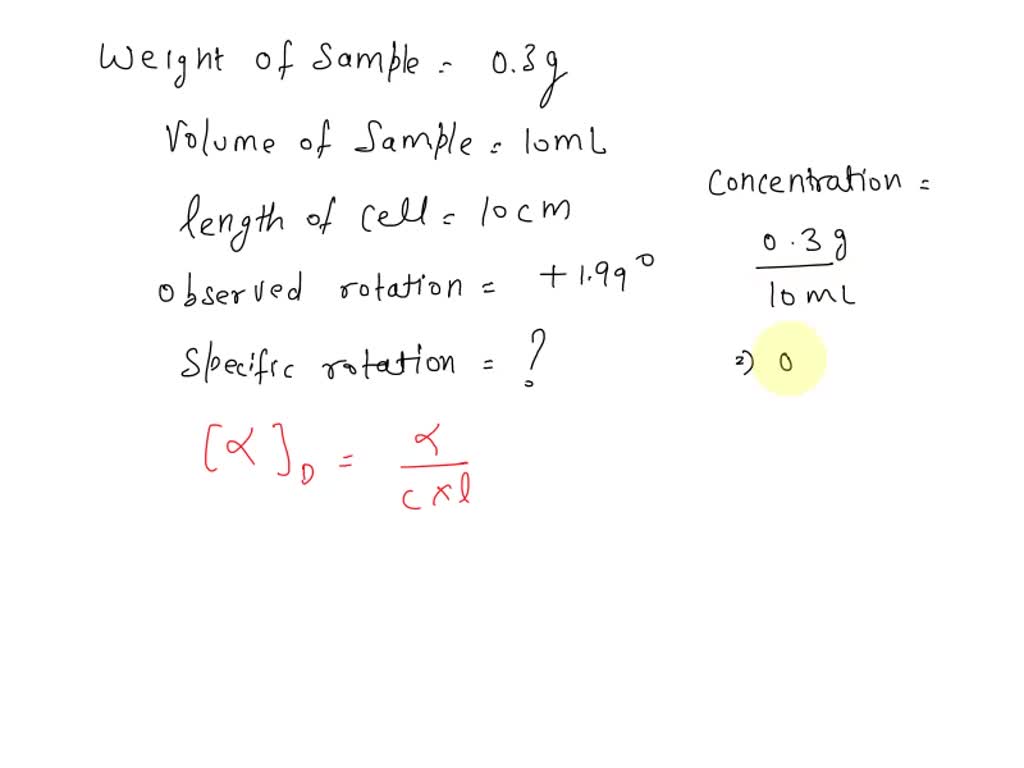 Weight of Sample = 0.3g
Volume of Sample = 10mL
length of cell = 10cm
observed rotation = +1.99°
Specific rotation = ?
[α]D = α / c×l
Concentration =
0.3g
10mL
⇒ 0